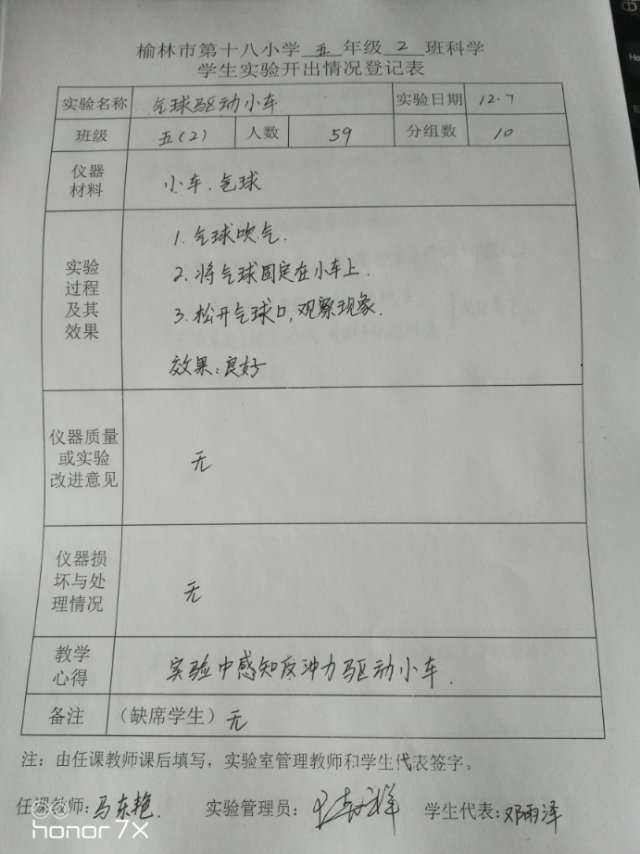 榆林市第十八小学 五 年级 2 班科学
学生实验开出情况登记表
实验名称 气球驱动小车 实验日期 12.7
班级 五(2) 人数 59 分组数 10
仪器
材料
小车、气球
实验
过程
及其
效果
1. 气球吹气.
2. 将气球固定在小车上.
3. 松开气球口,观察现象.
效果:良好
仪器质量
或实验
改进意见
无
仪器损
坏与处
理情况
无
教学
心得
实验中感知反冲力驱动小车.
备注 (缺席学生) 无
注:由任课教师课后填写,实验室管理教师和学生代表签字。
任课教师:马东艳. 实验管理员: 学生代表:邓雨泽
honor 7X